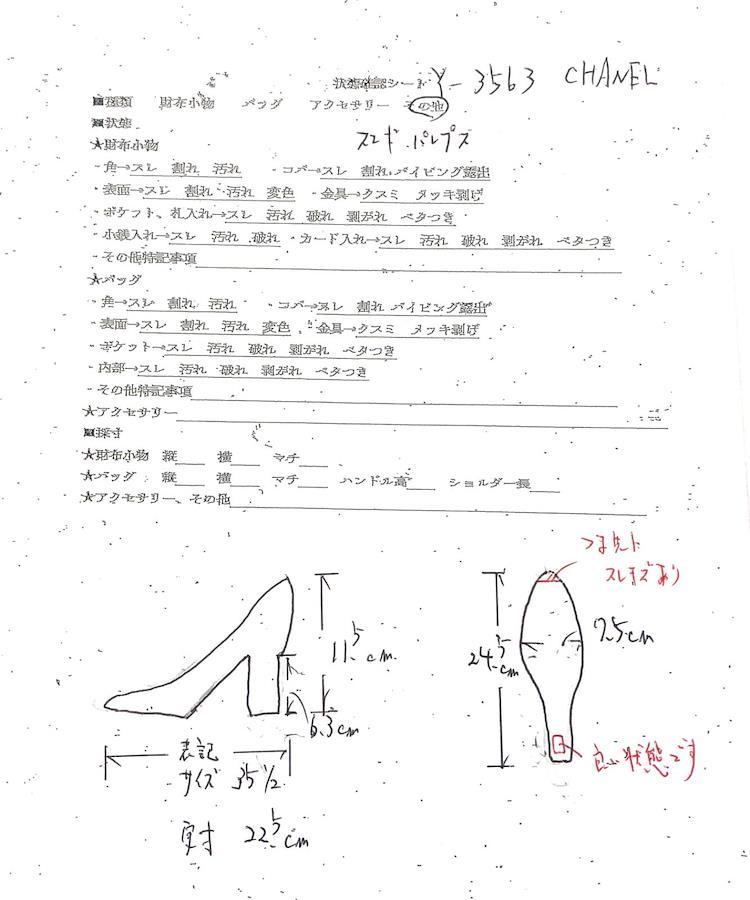 状態確認シート Y-3563 CHANEL
■種類 財布小物 バッグ アクセサリー その他
■状態 スエード パンプス
★財布小物
・角→スレ 割れ 汚れ ・コバ→スレ 割れ パイピング露出
・表面→スレ 割れ 汚れ 変色 ・金具→クスミ メッキ剥げ
・ポケット、札入れ→スレ 汚れ 破れ 剥がれ ベタつき
・小銭入れ→スレ 汚れ 破れ ・カード入れ→スレ 汚れ 破れ 剥がれ ベタつき
・その他特記事項
★バッグ
・角→スレ 割れ 汚れ ・コバ→スレ 割れ パイピング露出
・表面→スレ 割れ 汚れ 変色 ・金具→クスミ メッキ剥げ
・ポケット→スレ 汚れ 破れ 剥がれ ベタつき
・内部→スレ 汚れ 破れ 剥がれ ベタつき
・その他特記事項
★アクセサリー
■採寸
★財布小物 縦 横 マチ
★バッグ 縦 横 マチ ハンドル高 ショルダー長
★アクセサリー、その他
つま先に
スレキズあり
11.5cm
6.3cm
24.5cm
7.5cm
表記
サイズ 35 1/2
良い状態です
実寸 22.5cm